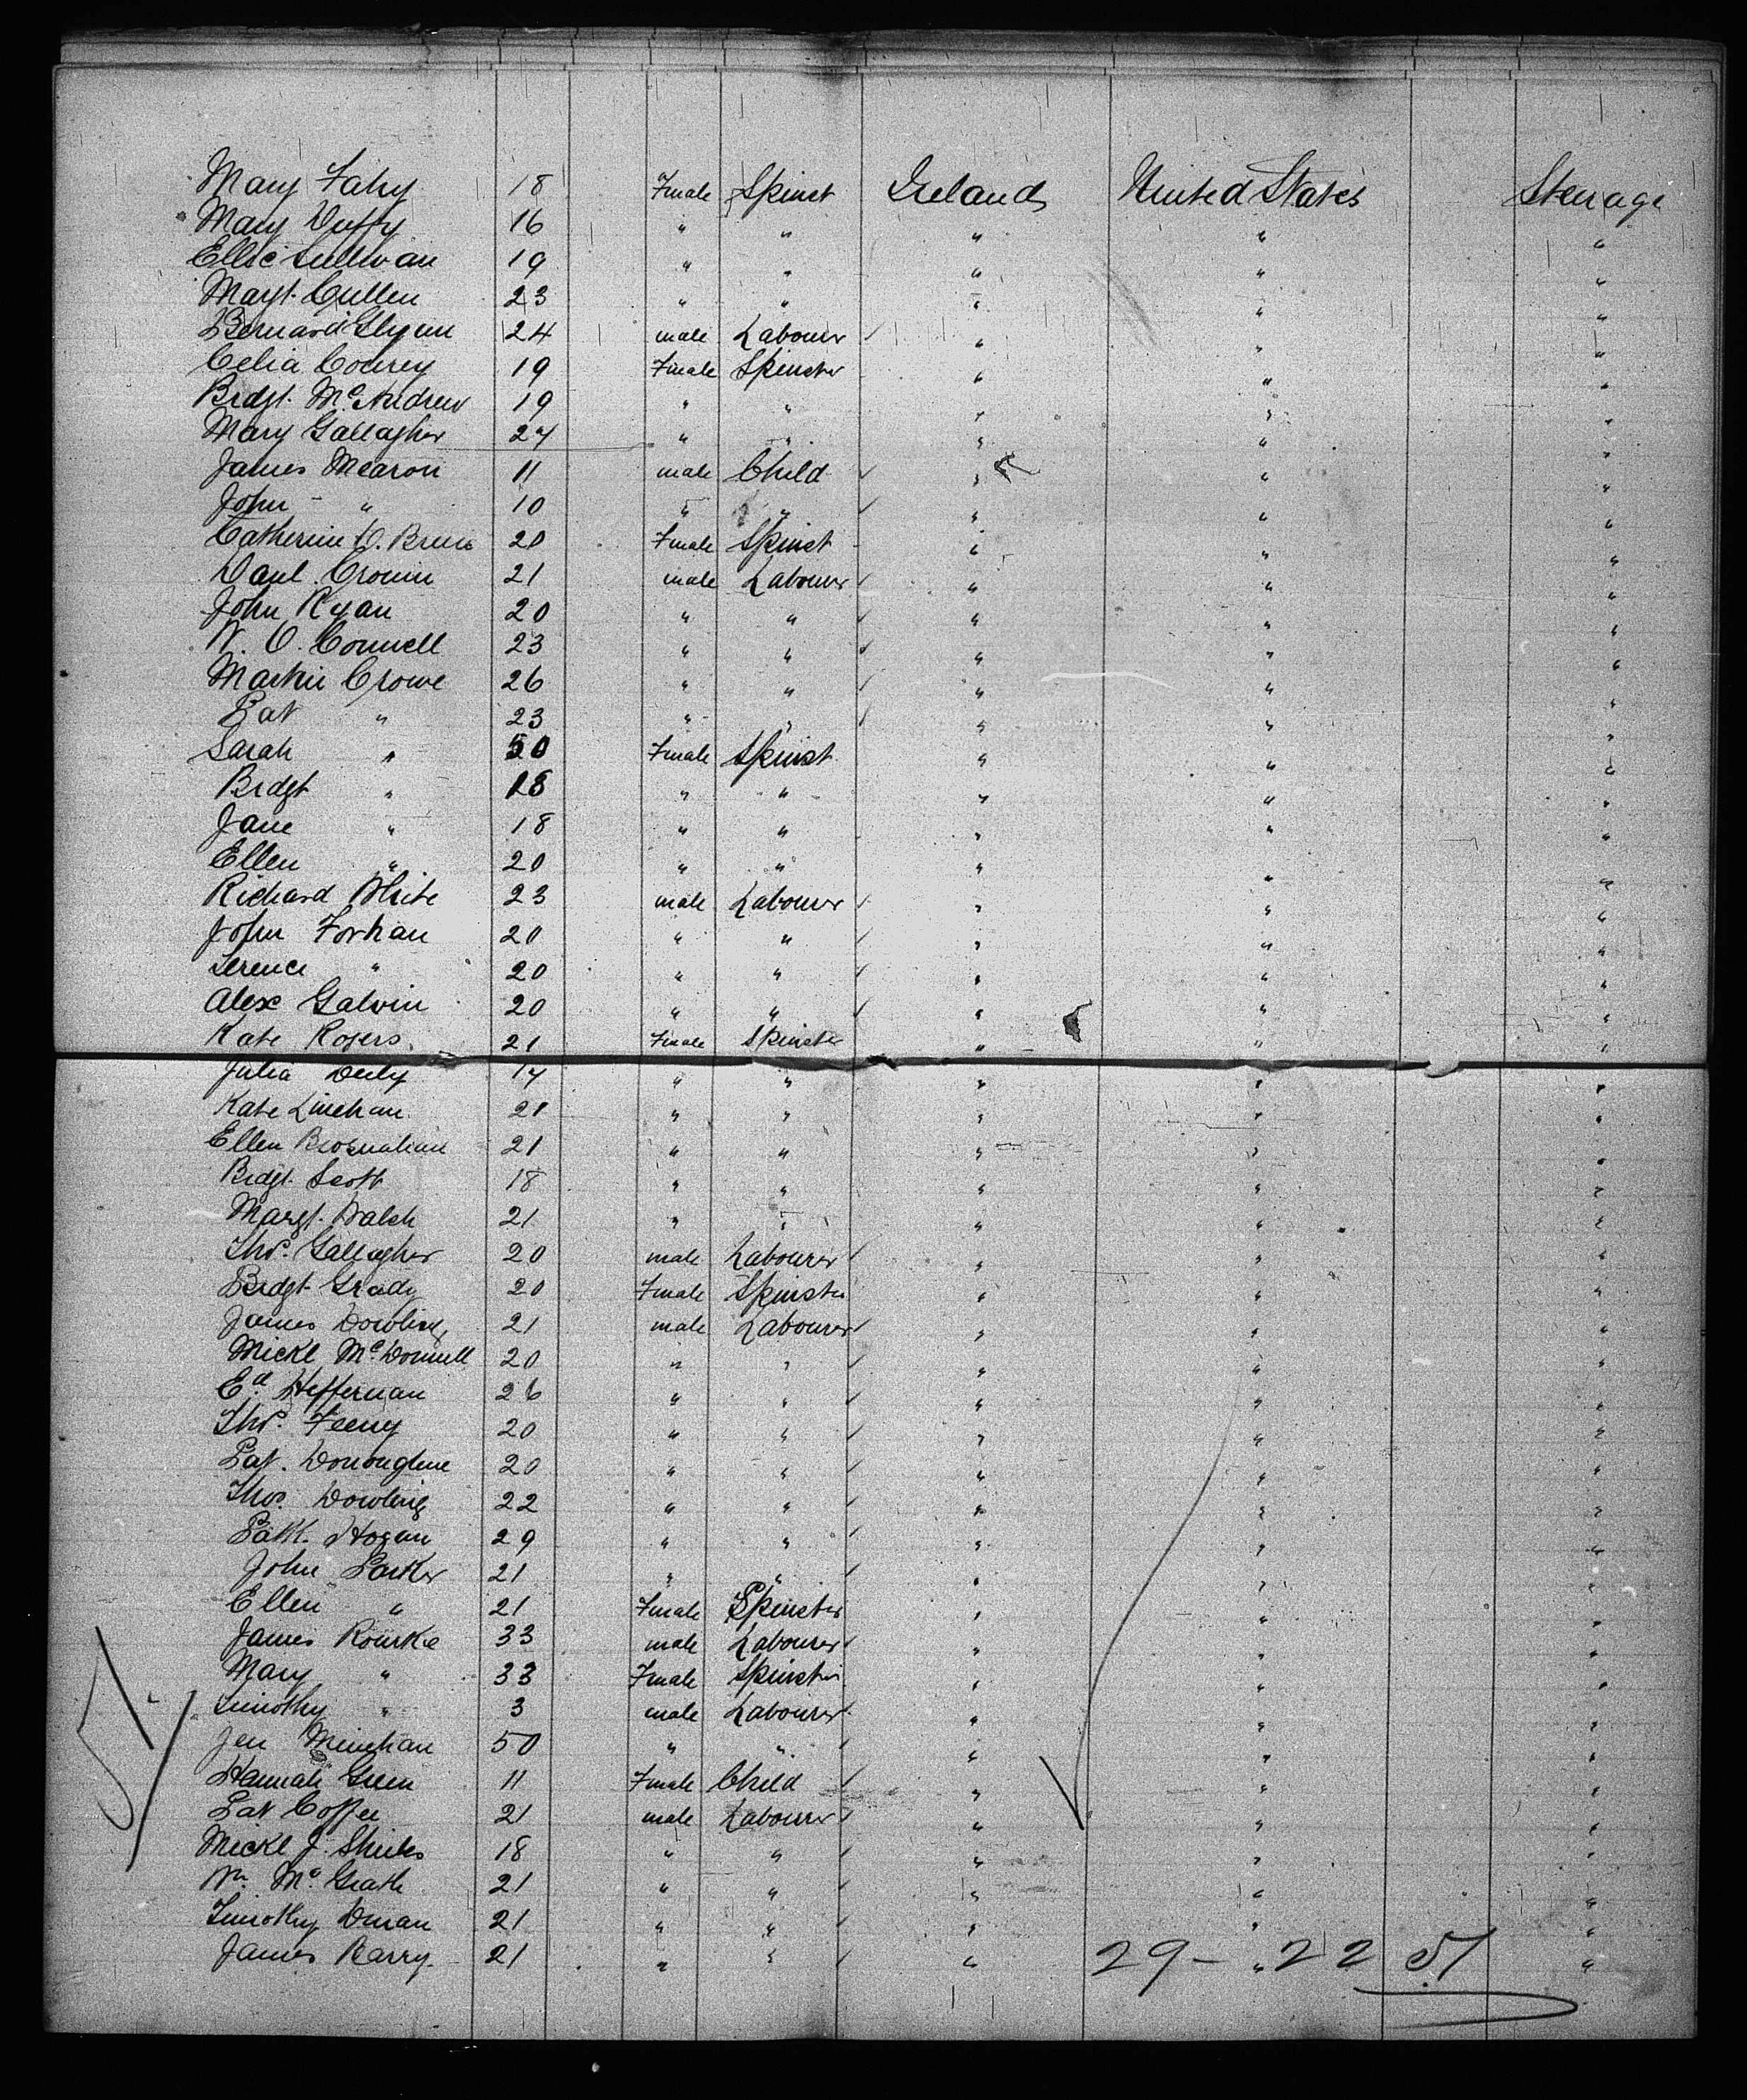 Mary Fahy 18 Female Spinst Ireland United States Steerage
Mary Duffy 16 " " " " "
Ellie Sullivan 19 " " " " "
Margt. Cullen 23 " " " " "
Bernard Glynn 24 male Labourer " " "
Celia 19 Female Spinster " " "
Bridgt. McAndrew 19 " " " " "
Mary Gallagher 24 " " " " "
James Mearon 11 male Child " " "
John " 10 " " " " "
Catherine O. Brien 20 Female Spinst " " "
Danl. Cronin 21 male Labourer " " "
John Ryan 20 " " " " "
W. O. Connell 23 " " " " "
Martin Crowe 26 " " " " "
Pat " 23 " " " " "
Sarah " 50 Female Spinst " " "
Bridgt " 18 " " " " "
Jane " 18 " " " " "
Ellen " 20 " " " " "
Richard White 23 male Labourer " " "
John Forhan 20 " " " " "
Terence " 20 " " " " "
Alex Galvin 20 " " " " "
Kate Rogers 21 Female Spinster " " "
Julia " " " " "
Kate Linehan 21 " " " " "
Ellen Brosnahan 21 " " " " "
Bridgt. Scott 18 " " " " "
Margt. Walsh 21 " " " " "
Thos. Gallagher 20 male Labourer " " "
Bridgt. Grady 20 Female Spinster " " "
James Dowling 21 male Labourer " " "
Mickl McDonnell 20 " " " " "
Ed. Heffernan 26 " " " " "
Thos. Feeny 20 " " " " "
Pat. Donoughue 20 " " " " "
Thos. Dowling 22 " " " " "
Patk. Hogan 29 " " " " "
John Parker 21 " " " " "
Ellen " 21 Female Spinster " " "
James Rourke 33 male Labourer " " "
Mary " 33 Female Spinster " " "
Timothy " 3 male Labourer " " "
Jer Minehan 50 " " " " "
Hannah Green 11 Female Child " " "
Pat Coffee 21 male Labourer " " "
Mickl J. 18 " " " " "
Wm. McGrath 21 " " " " "
Timothy 21 " " " " "
James Barry. 21 " " " " "
29 - 22 51
51